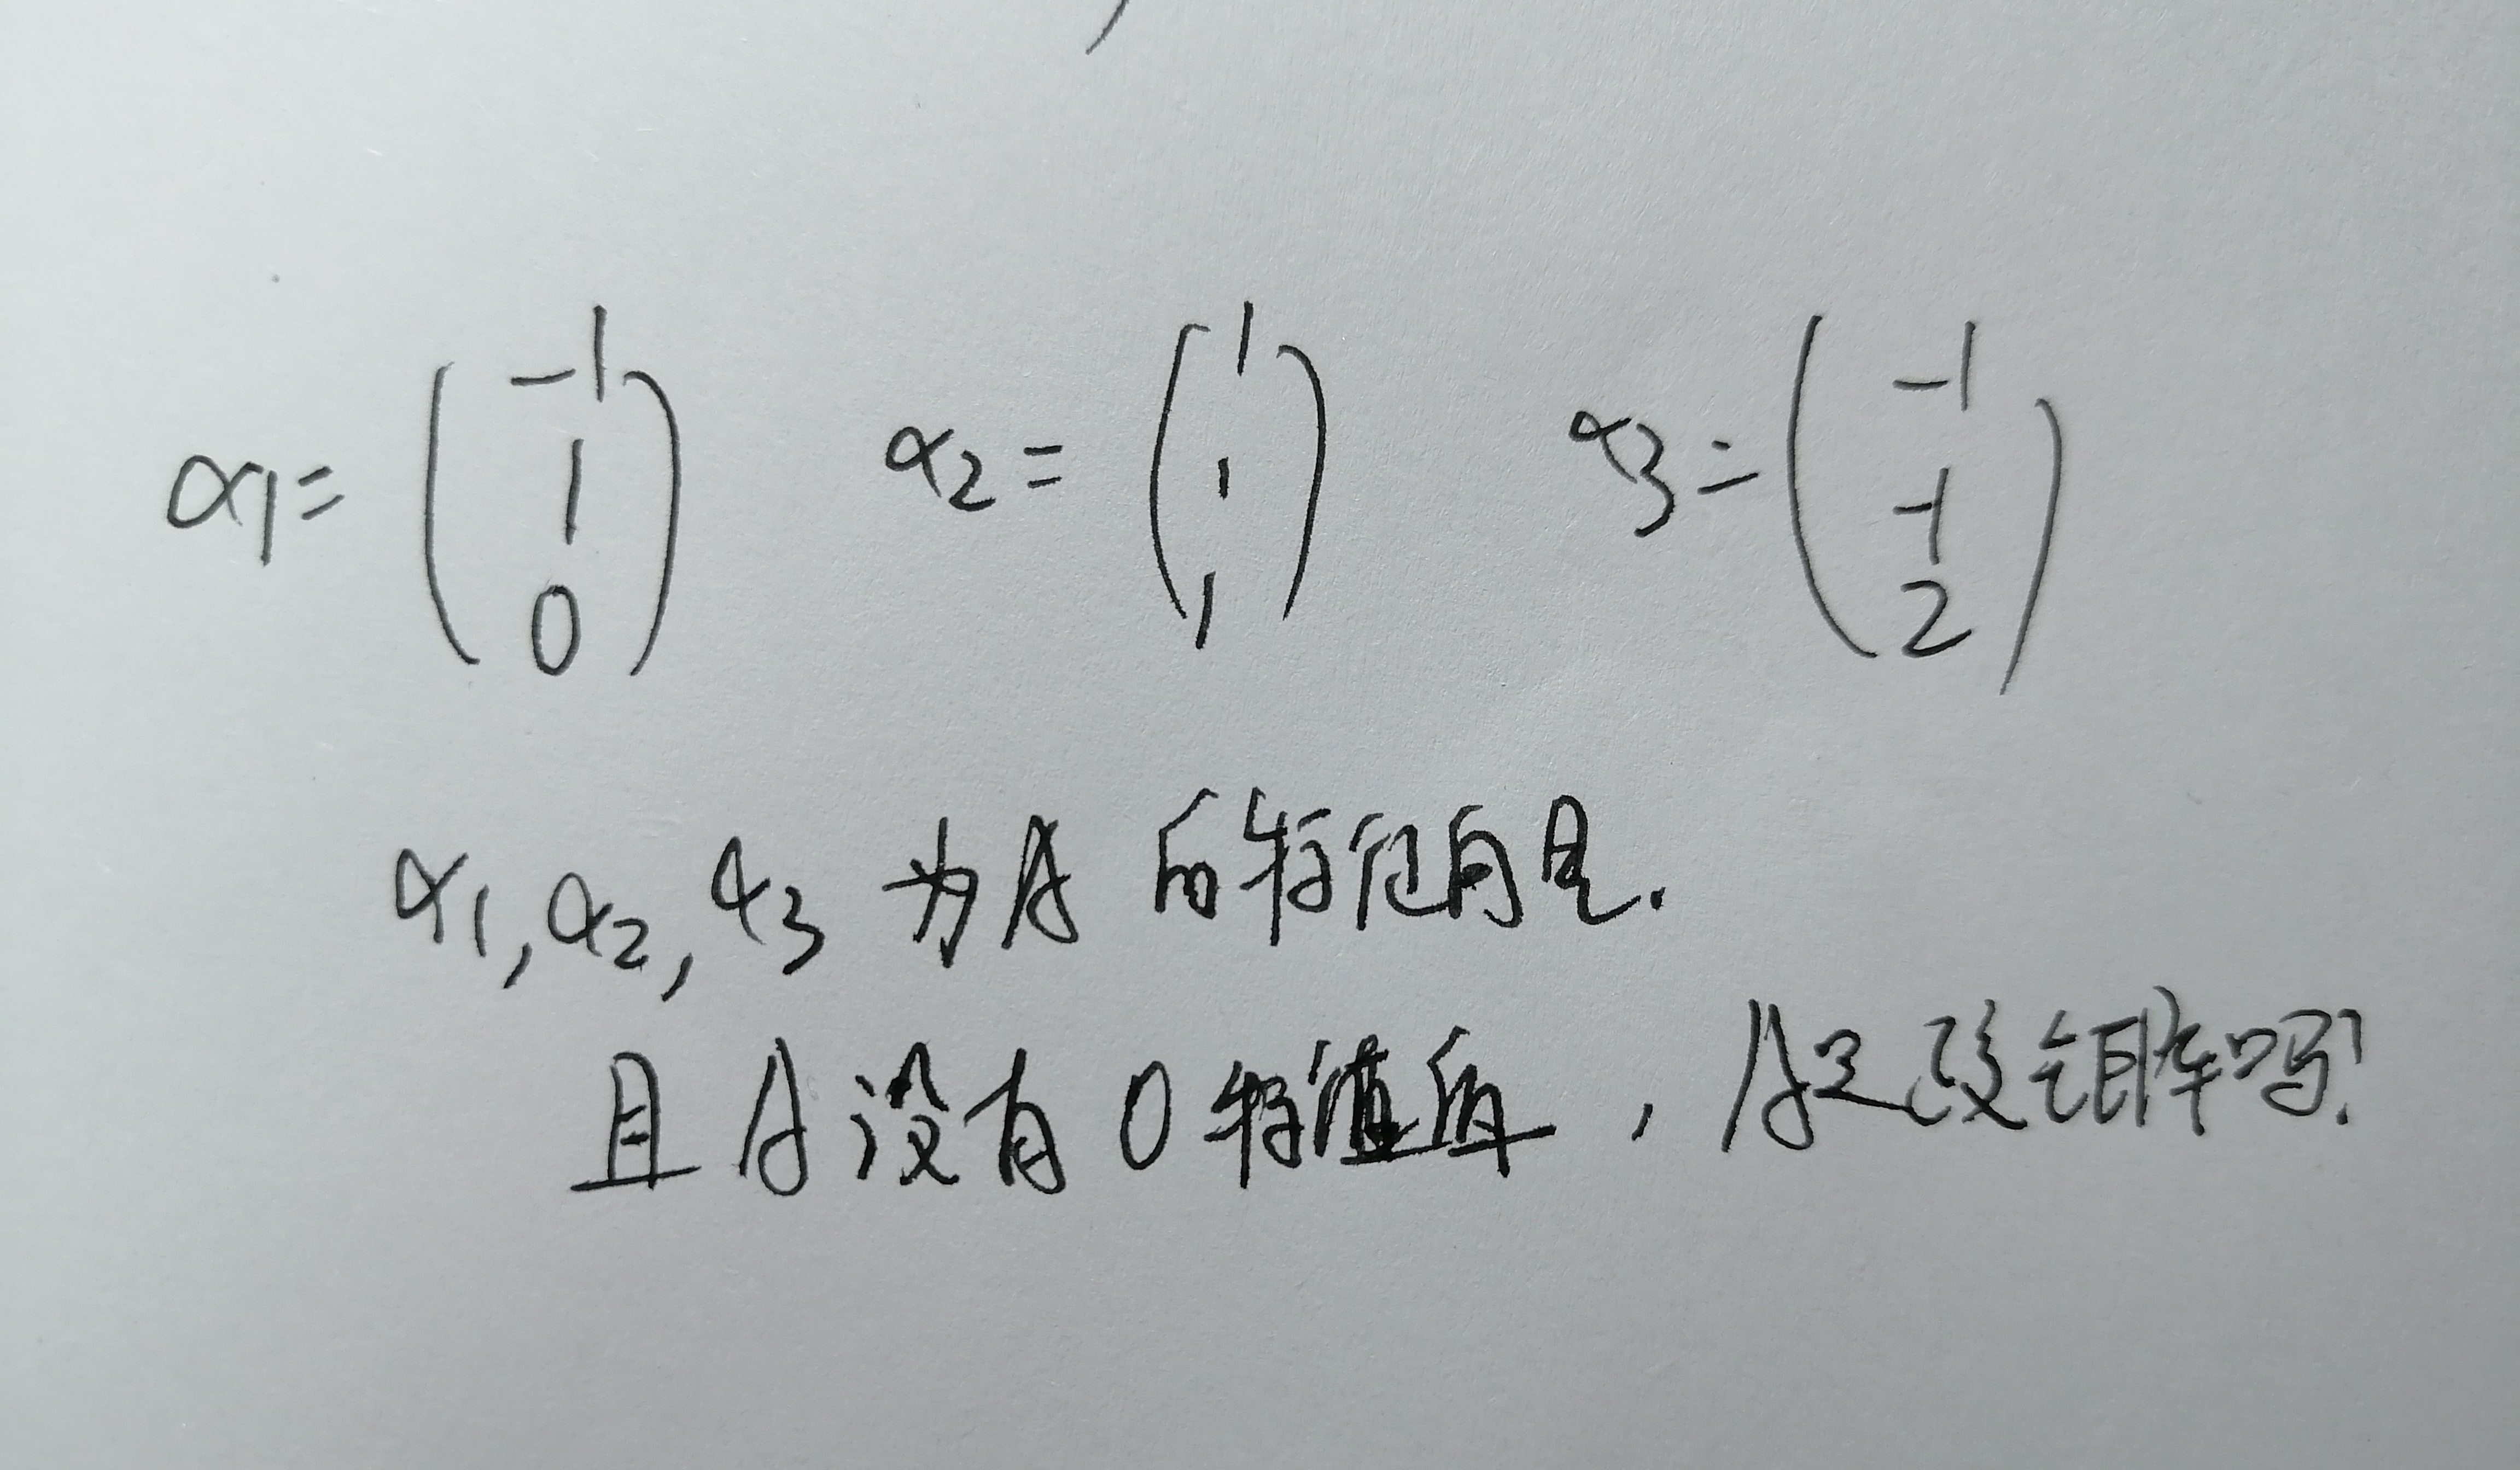 α1= (-1 1 0) α2= (1 1 1) α3= (-1 -1 2)
α1,α2,α3 为A 的特征向量.
且 A 没有 0 特征值, A是 矩阵吗?